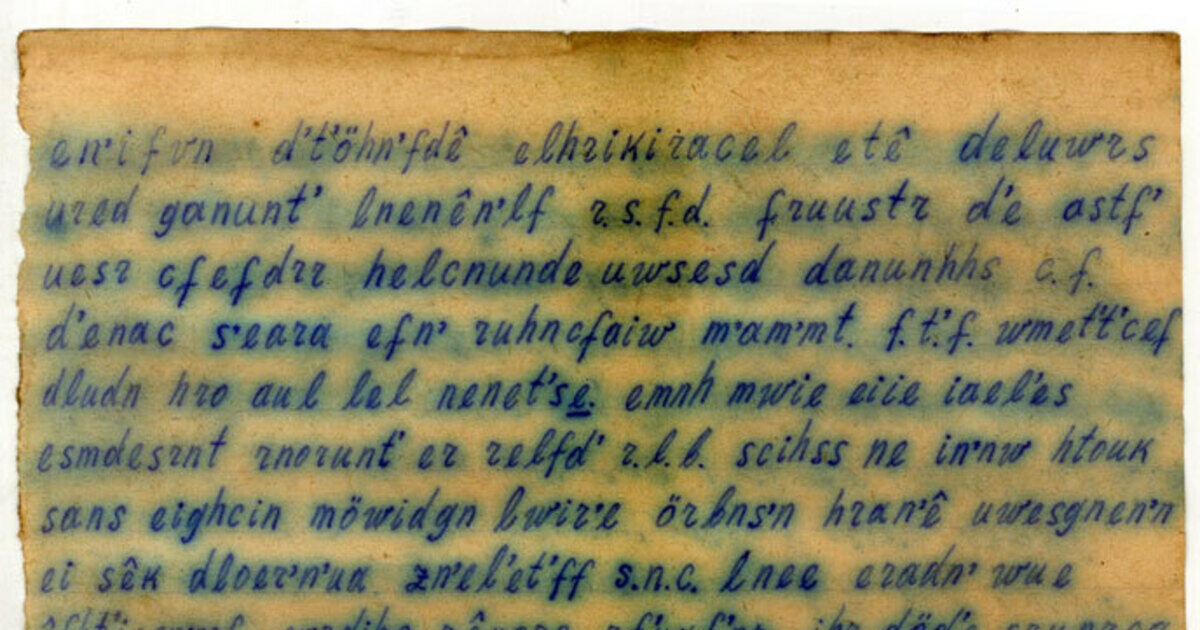 en'i fvn d't'öhn'fdê elhrikiracel etê deluwrs
ured ganunt' lnenên'lf r.s.f.d. fruustr d'e astf'
uesr cfefdrr helcnunde uwsesd danunhhs c.f.
d'enac s'eara efn' ruhncfaiw m'am'mt. f.t'.f. wmet't'cef
dludn hro aul lel nenet'se. emnh mwie eiie iael'es
esmdesrnt rnorunt' er relfd' r.l.b. scihss ne in'nw htouk
sans eighcin möwidgn lwir'e örbns'n hran'ê uwesgnen'n
ei sêk dloer'n'ua zn'el'et'ff s.n.c. lnee eradn' wue